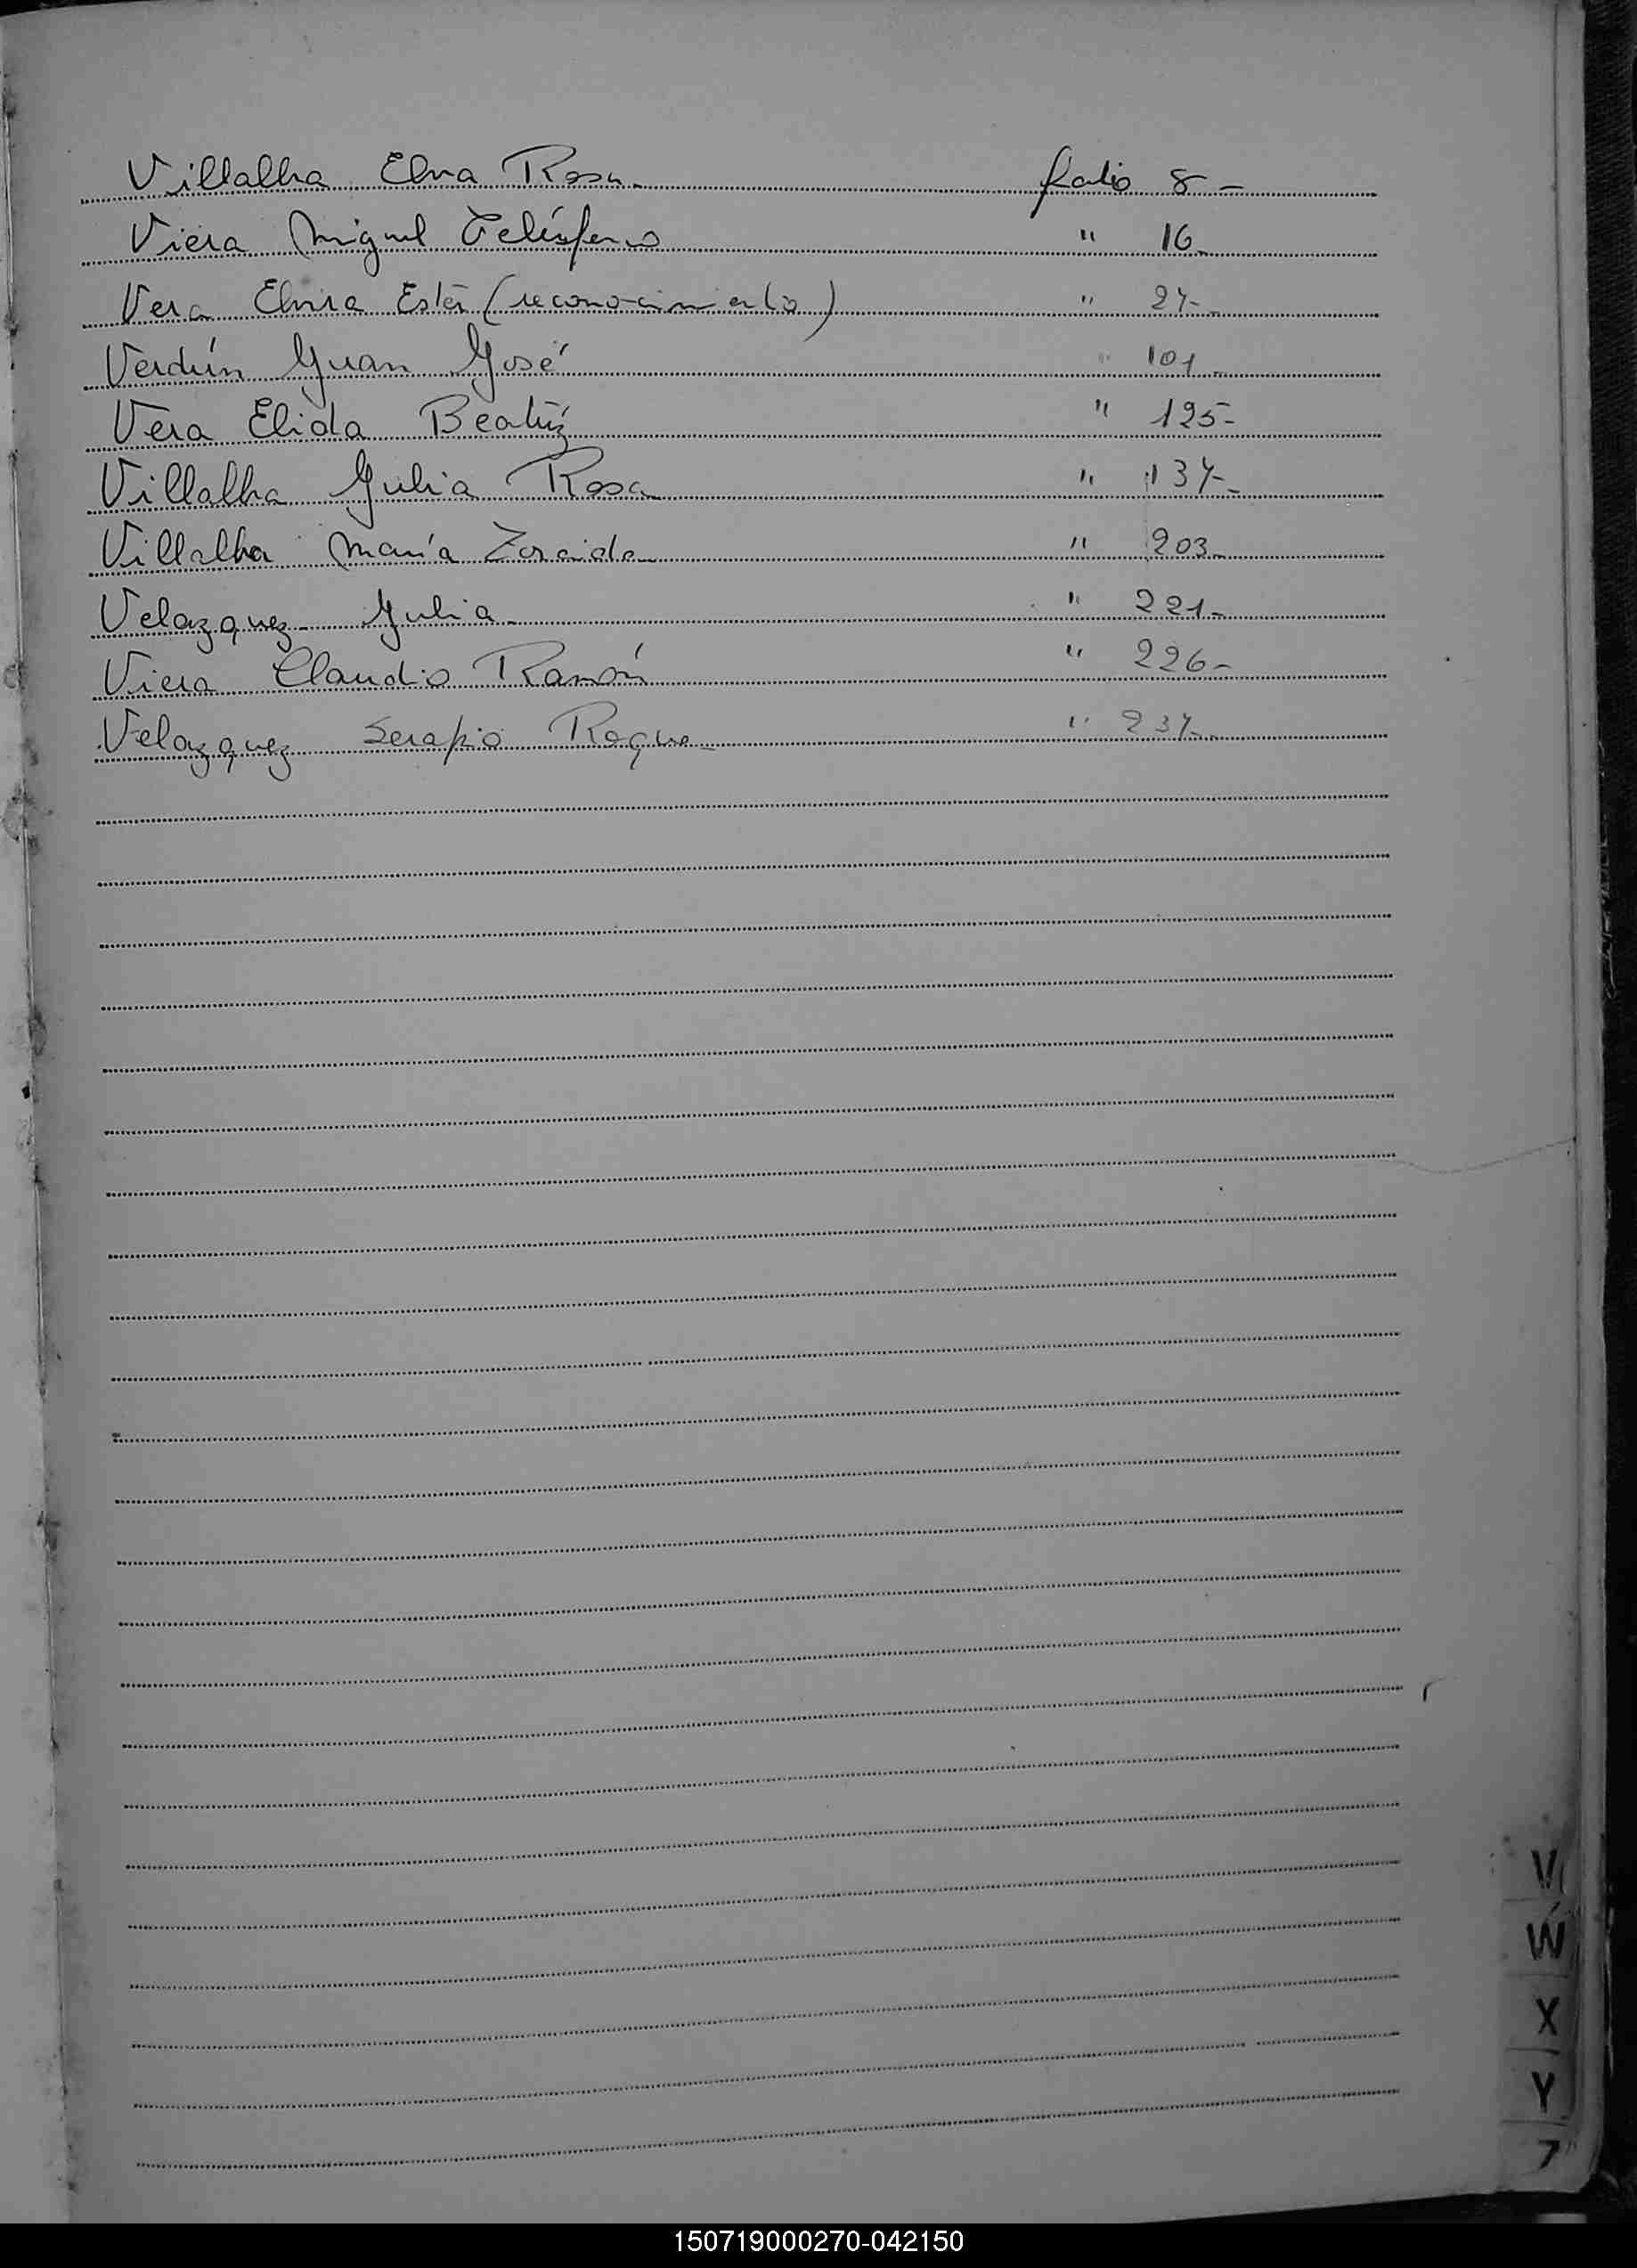 Villalba Elva Rosa folio 8-
Viera Miguel Telésforo " 16-
Vera Elvira Ester (reconocimiento) " 27-
Verdún Juan José " 101-
Vera Elida Beatriz " 125-
Villalba Julia Rosa " 137-
Villalba María Zoraida " 203-
Velazquez Julia " 221-
Viera Claudio Ramón " 226-
Velazquez Serapio Roque " 237-
V
W
X
Y
Z
150719000270-042150